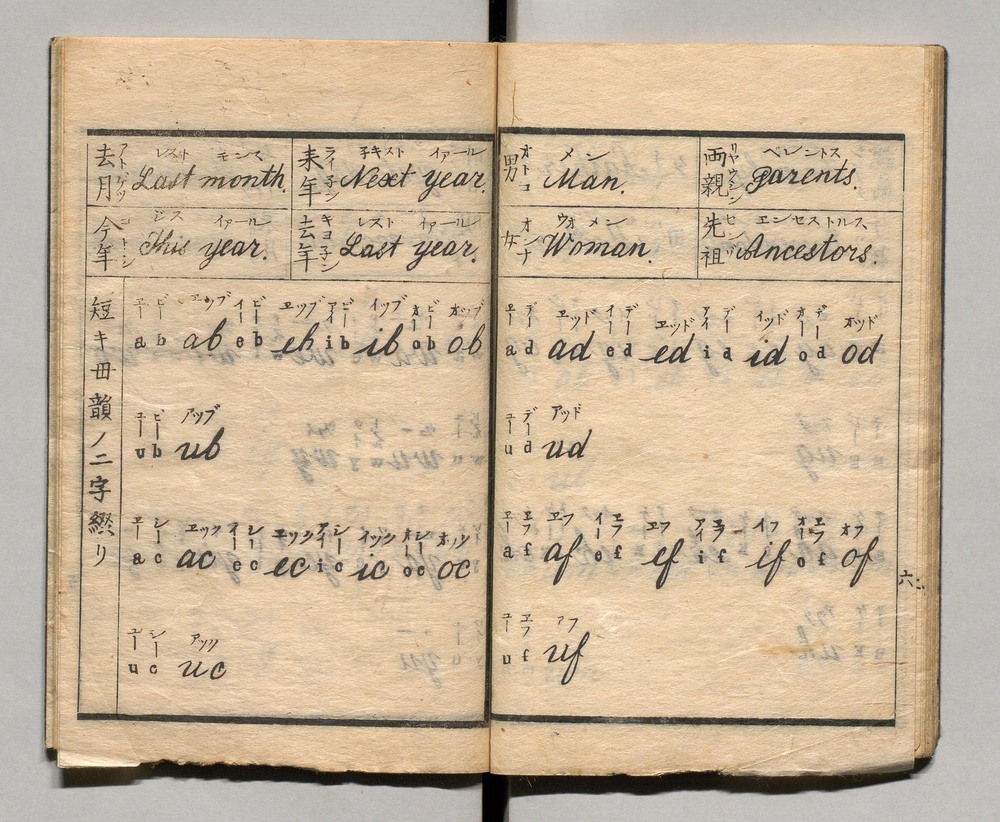 去月 アトゲツ レスト モンス Last month.
来年 ライ子ン 子キスト イアール Next year.
今年 コトシ ジス イアール This year.
去年 キヨ子ン レスト イアール Last year.
男 オトコ メン Man.
両親 リヤウシン ペレントス Parents.
女 オンナ ウオメン Woman.
先祖 センゾ エンセストルス Ancestors.
短キ母韻ノ二字綴り
エー ビー エッブ イー ビー エッブ アイ ビー イッブ オー ビー オッブ
a b ab e b eb i b ib o b ob
ユー ビー アッブ
u b ub
エー シー エック イー シー エック アイ シー イック オー シー オック
a c ac e c ec i c ic o c oc
ユー シー アック
u c uc
エー デー エッド イー デー エッド アイ デー イッド オー デー オッド
a d ad e d ed i d id o d od
ユー デー アッド
u d ud
エー エフ エフ イー エフ エフ アイ エフ イフ オー エフ オフ
a f af e f ef i f if o f of
ユー エフ アフ
u f uf
六